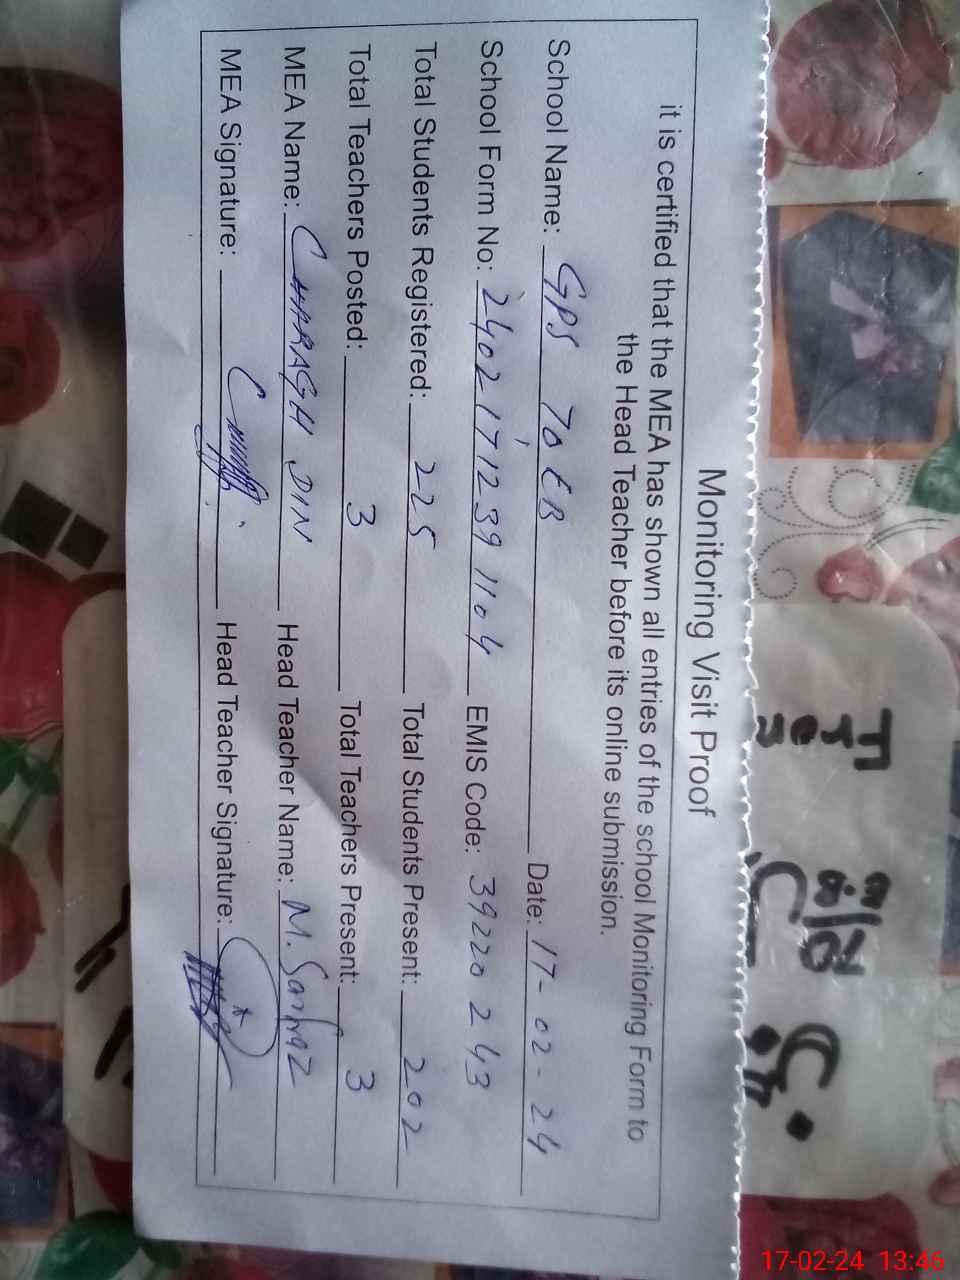 Monitoring Visit Proof
it is certified that the MEA has shown all entries of the school Monitoring Form to
the Head Teacher before its online submission.
School Name: GPS 70 EB Date: 17-02-24
School Form No: 2402171239 1104 EMIS Code: 39220243
Total Students Registered: 225 Total Students Present: 202
Total Teachers Posted: 3 Total Teachers Present: 3
MEA Name: CHARAGH DIN Head Teacher Name: M. Sarfraz
MEA Signature: Head Teacher Signature:
17-02-24 13:46